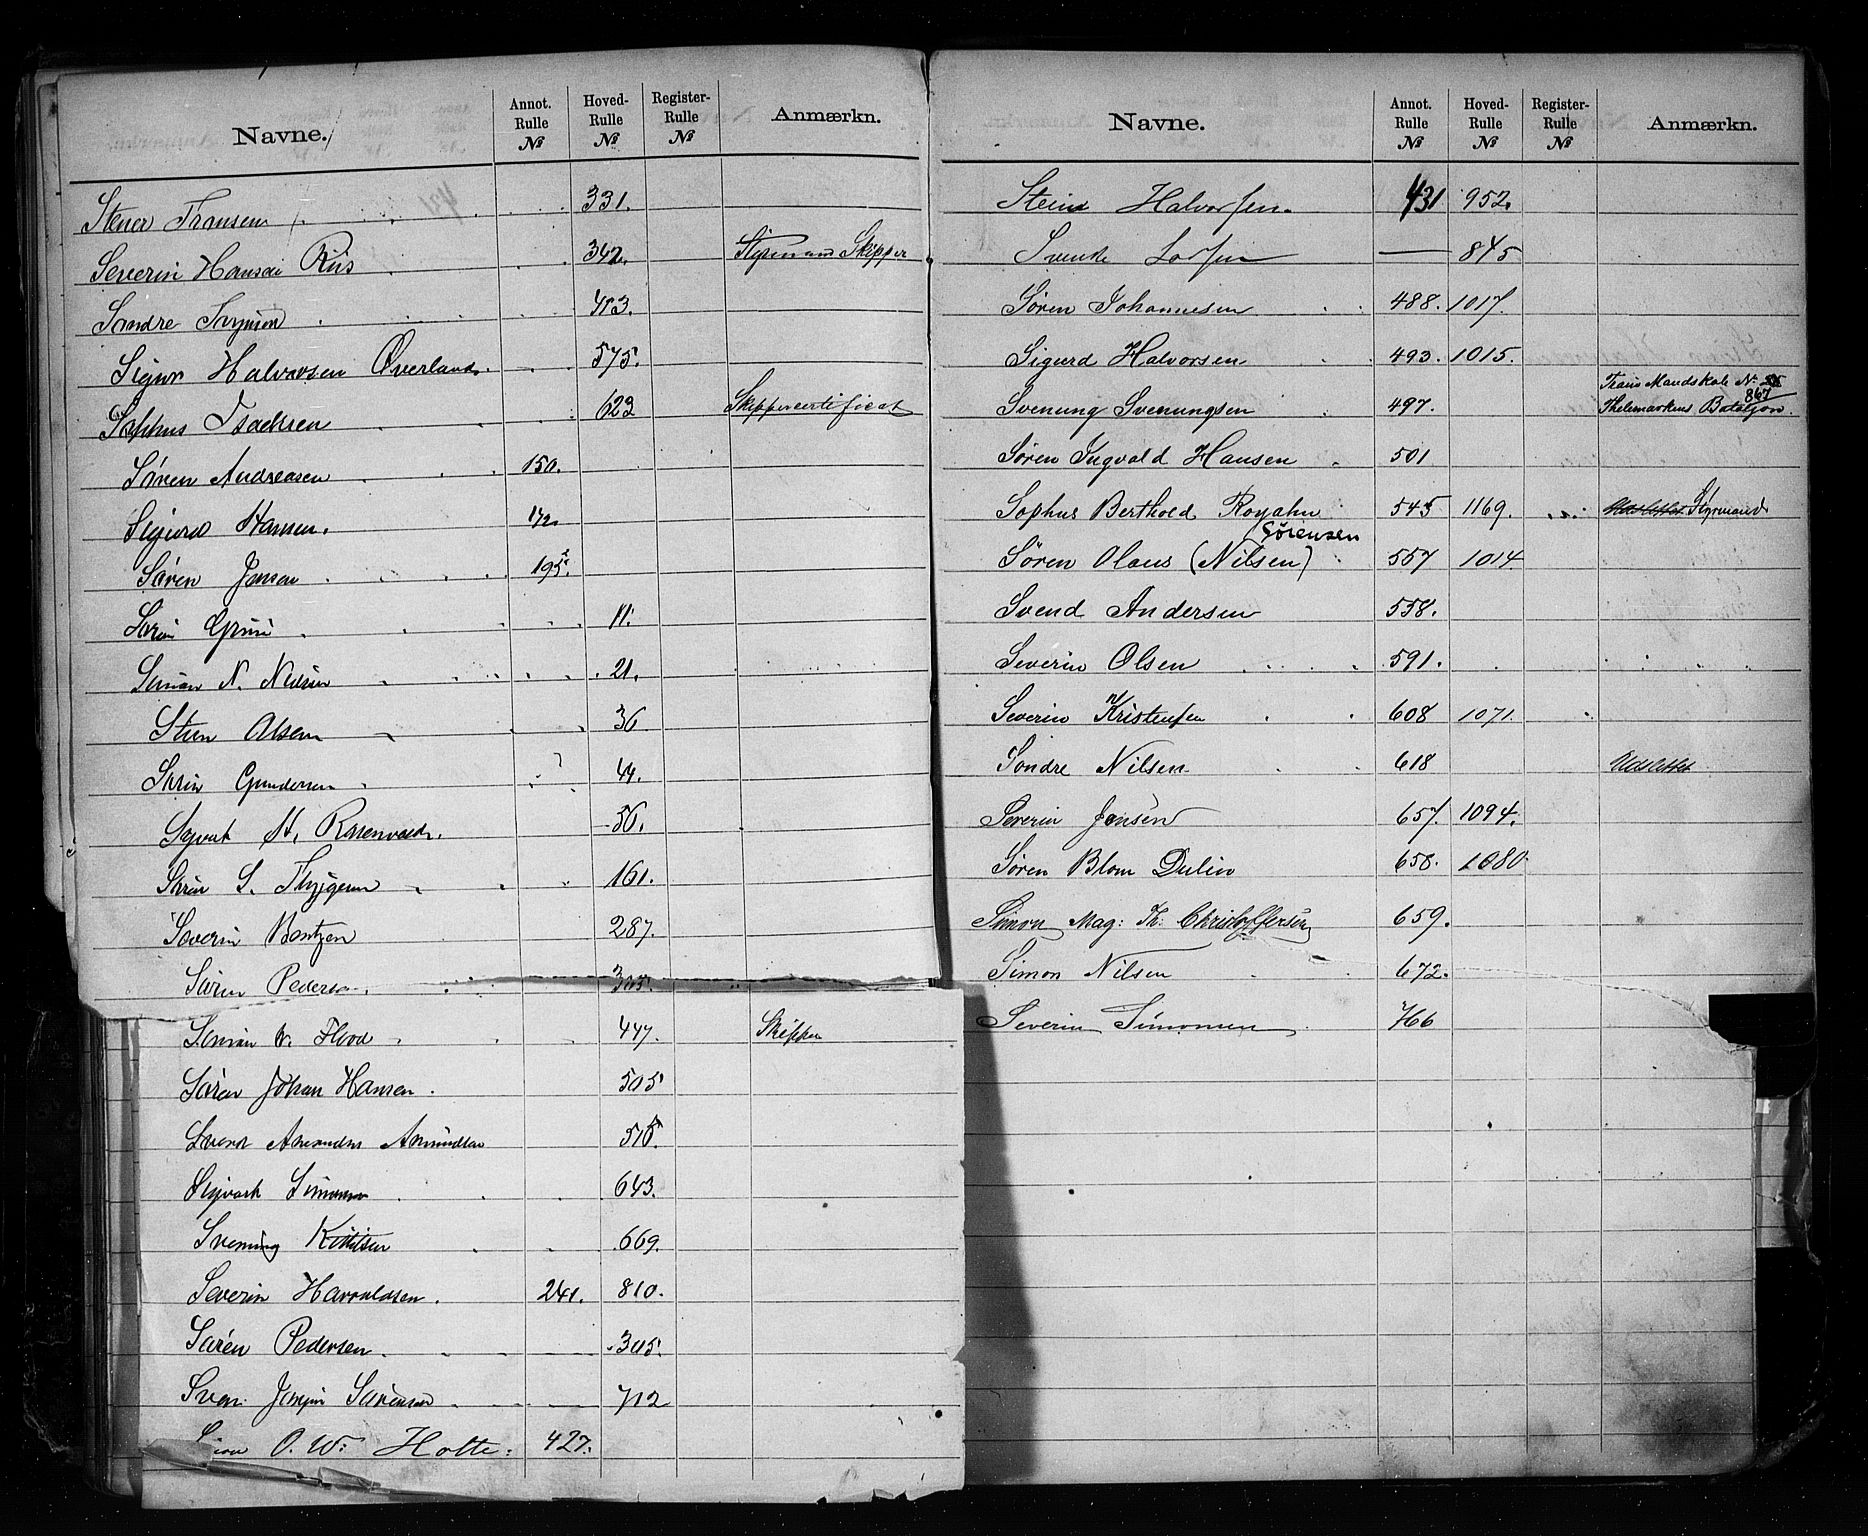 Navne. Annot. Rulle № Hoved- Rulle № Register- Rulle № Anmærkn.
Stener Fransen 331.
Severin Hansen Riis 342. Styrmand Skipper
Sondre 413.
Sigur Halvorsen Øverland. 575.
Sophus Isachsen 623 Skippercertificat
Søren Andreasen 150.
Sigurd Hansen. 172.
Søren Jensen 195.
Søren 11.
Simon N. Nielsen 21.
Steen Olsen 36
Søren Gundersen 44.
Sigvart H. Rosenvold. 56.
Søren S. Thygesen 161.
Severin Bentzen 287.
Søren Pedersen. 305.
Simon Flood 447. Skipper
Søren Johan Hansen. 505
Svend Amundsen 515.
Sigvart Simonsen 643.
Svenung Kittilsen 669.
Severin Havaldsen. 241. 810.
Søren Pedersen. 305.
Sven Sørensen 712
O. W. Holte. 427.
Navne. Annot. Rulle № Hoved- Rulle № Register- Rulle № Anmærkn.
Stein Halvorsen. 431 952.
Svende — 845
Søren Johannesen 488. 1017.
Sigurd Halvorsen 493. 1015.
Træns Mandskab No
867
Svenung Svenungsen 497. Thelemarkens Bataljon.
Søren Ingvald Hansen 501
Sophus Berthold 545 1169. Udslettet Styrmand
Sørensen
Søren Olaus (Nilsen) 557 1014
Svend Andersen 558.
Severin Olsen 591.
Severin Kristensen 608 1071.
Søndre Nilsen 618 Udslettet
Severin Jensen 657. 1094.
Søren Blom Dulin 658. 1080.
Simon Mag: Th: Christoffersen 659.
Simon Nilsen 672.
Severin Simonsen 766